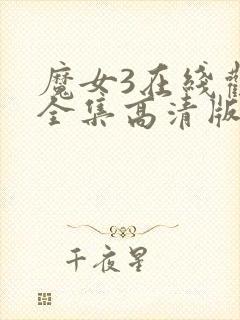 魔女3在线
全集高清版
千夜星